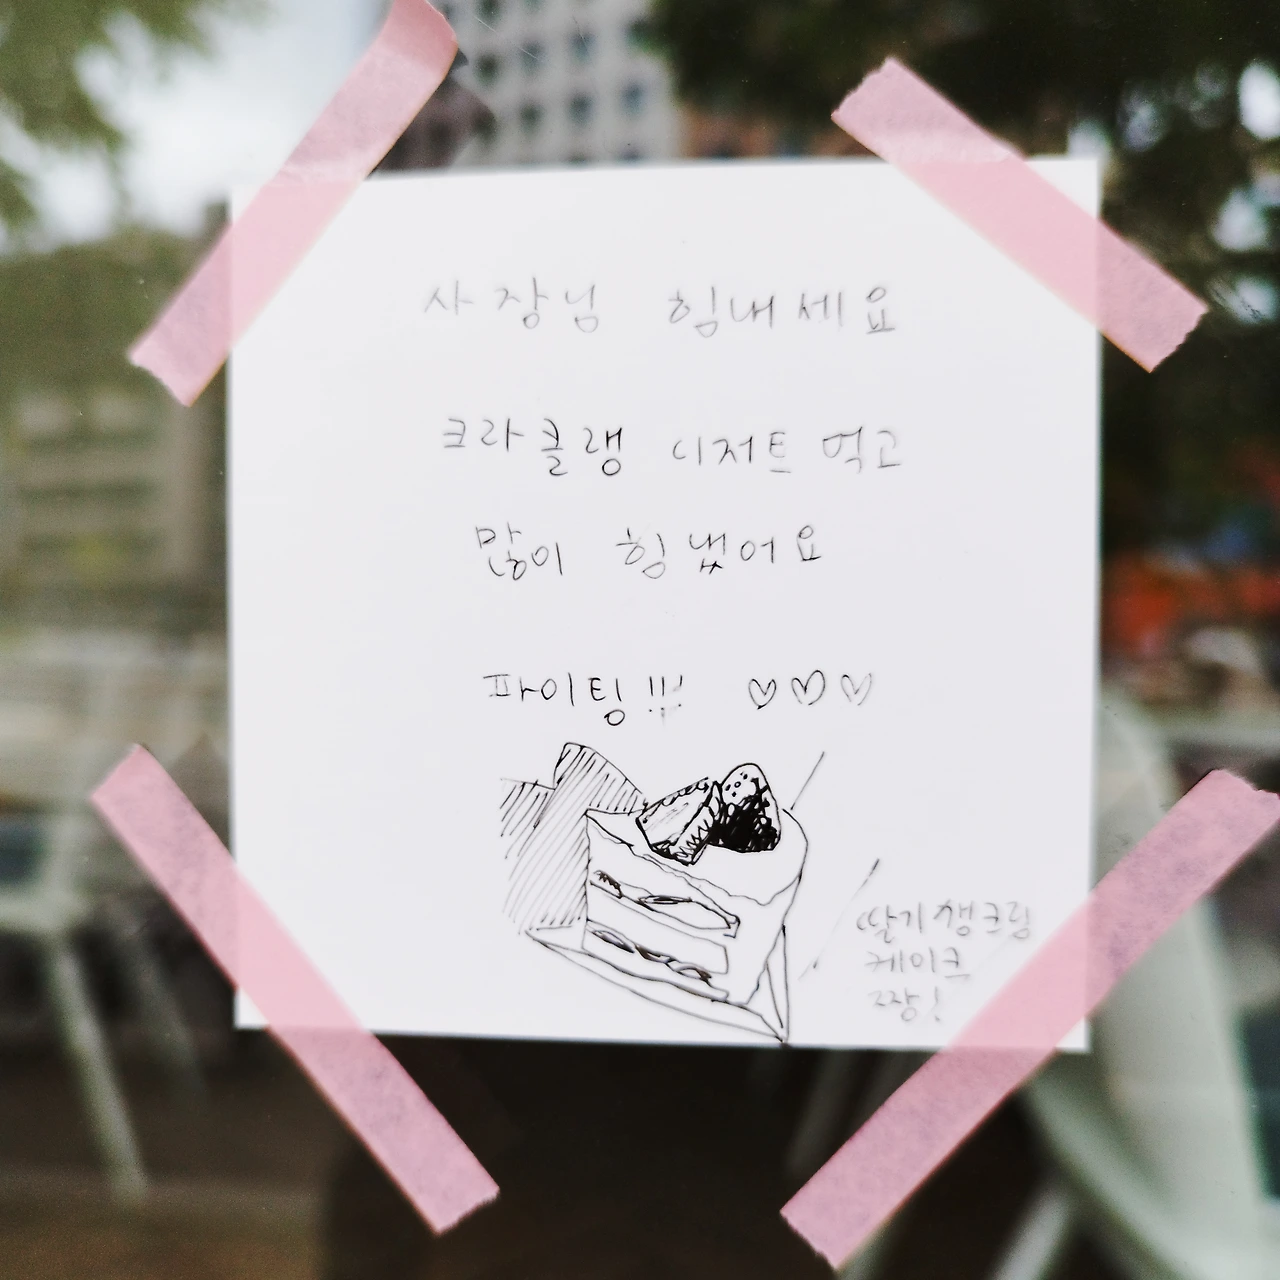 사장님 힘내세요
크라클랭 디저트 먹고
많이 힘냈어요
파이팅!!! ♡♡♡
딸기생크림
케이크
짱!